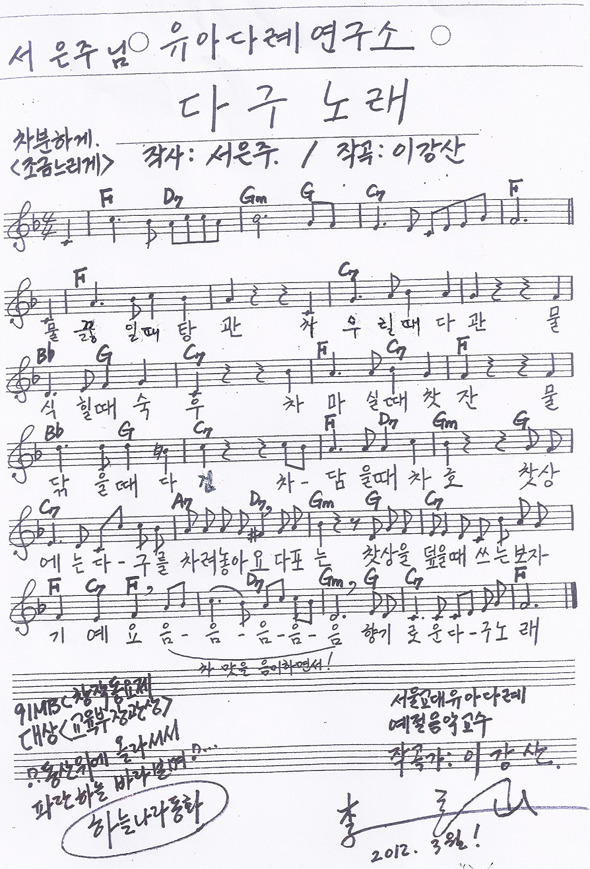 서 은주 님 유아다례연구소
다구 노래
차분하게.
<조금느리게> 작사: 서은주. / 작곡: 이강산
F D7 Gm G C7 F
4/4
F C7
물 끓 일때 탕 관 차 우 릴때 다 관 물
Bb G C7 F C7 F
식 힐때 숙 우 차 마 실때 찻 잔 물
Bb G C7 F D7 Gm G
닦 을때 다 건 차- 담 을때 차 호 찻상
C7 A7 D7, Gm G C7
에 는 다-구를 차려놓아요 다포 는 찻상을 덮을때 쓰는보자-
F C7 F, D7 Gm, G C7 F
기 예 요 음- 음- 음-음- 음 향기 로 운 다-구노 래
차 맛을 음미하면서!
91MBC창작동요제
대상<교육부장관상>
♪♪동산위에 올라서서
파란하늘 바라보며♪...
하늘나라동화
서울교대유아다례
예절음악교수
작곡가: 이 강 산.
李
2012. 3월!